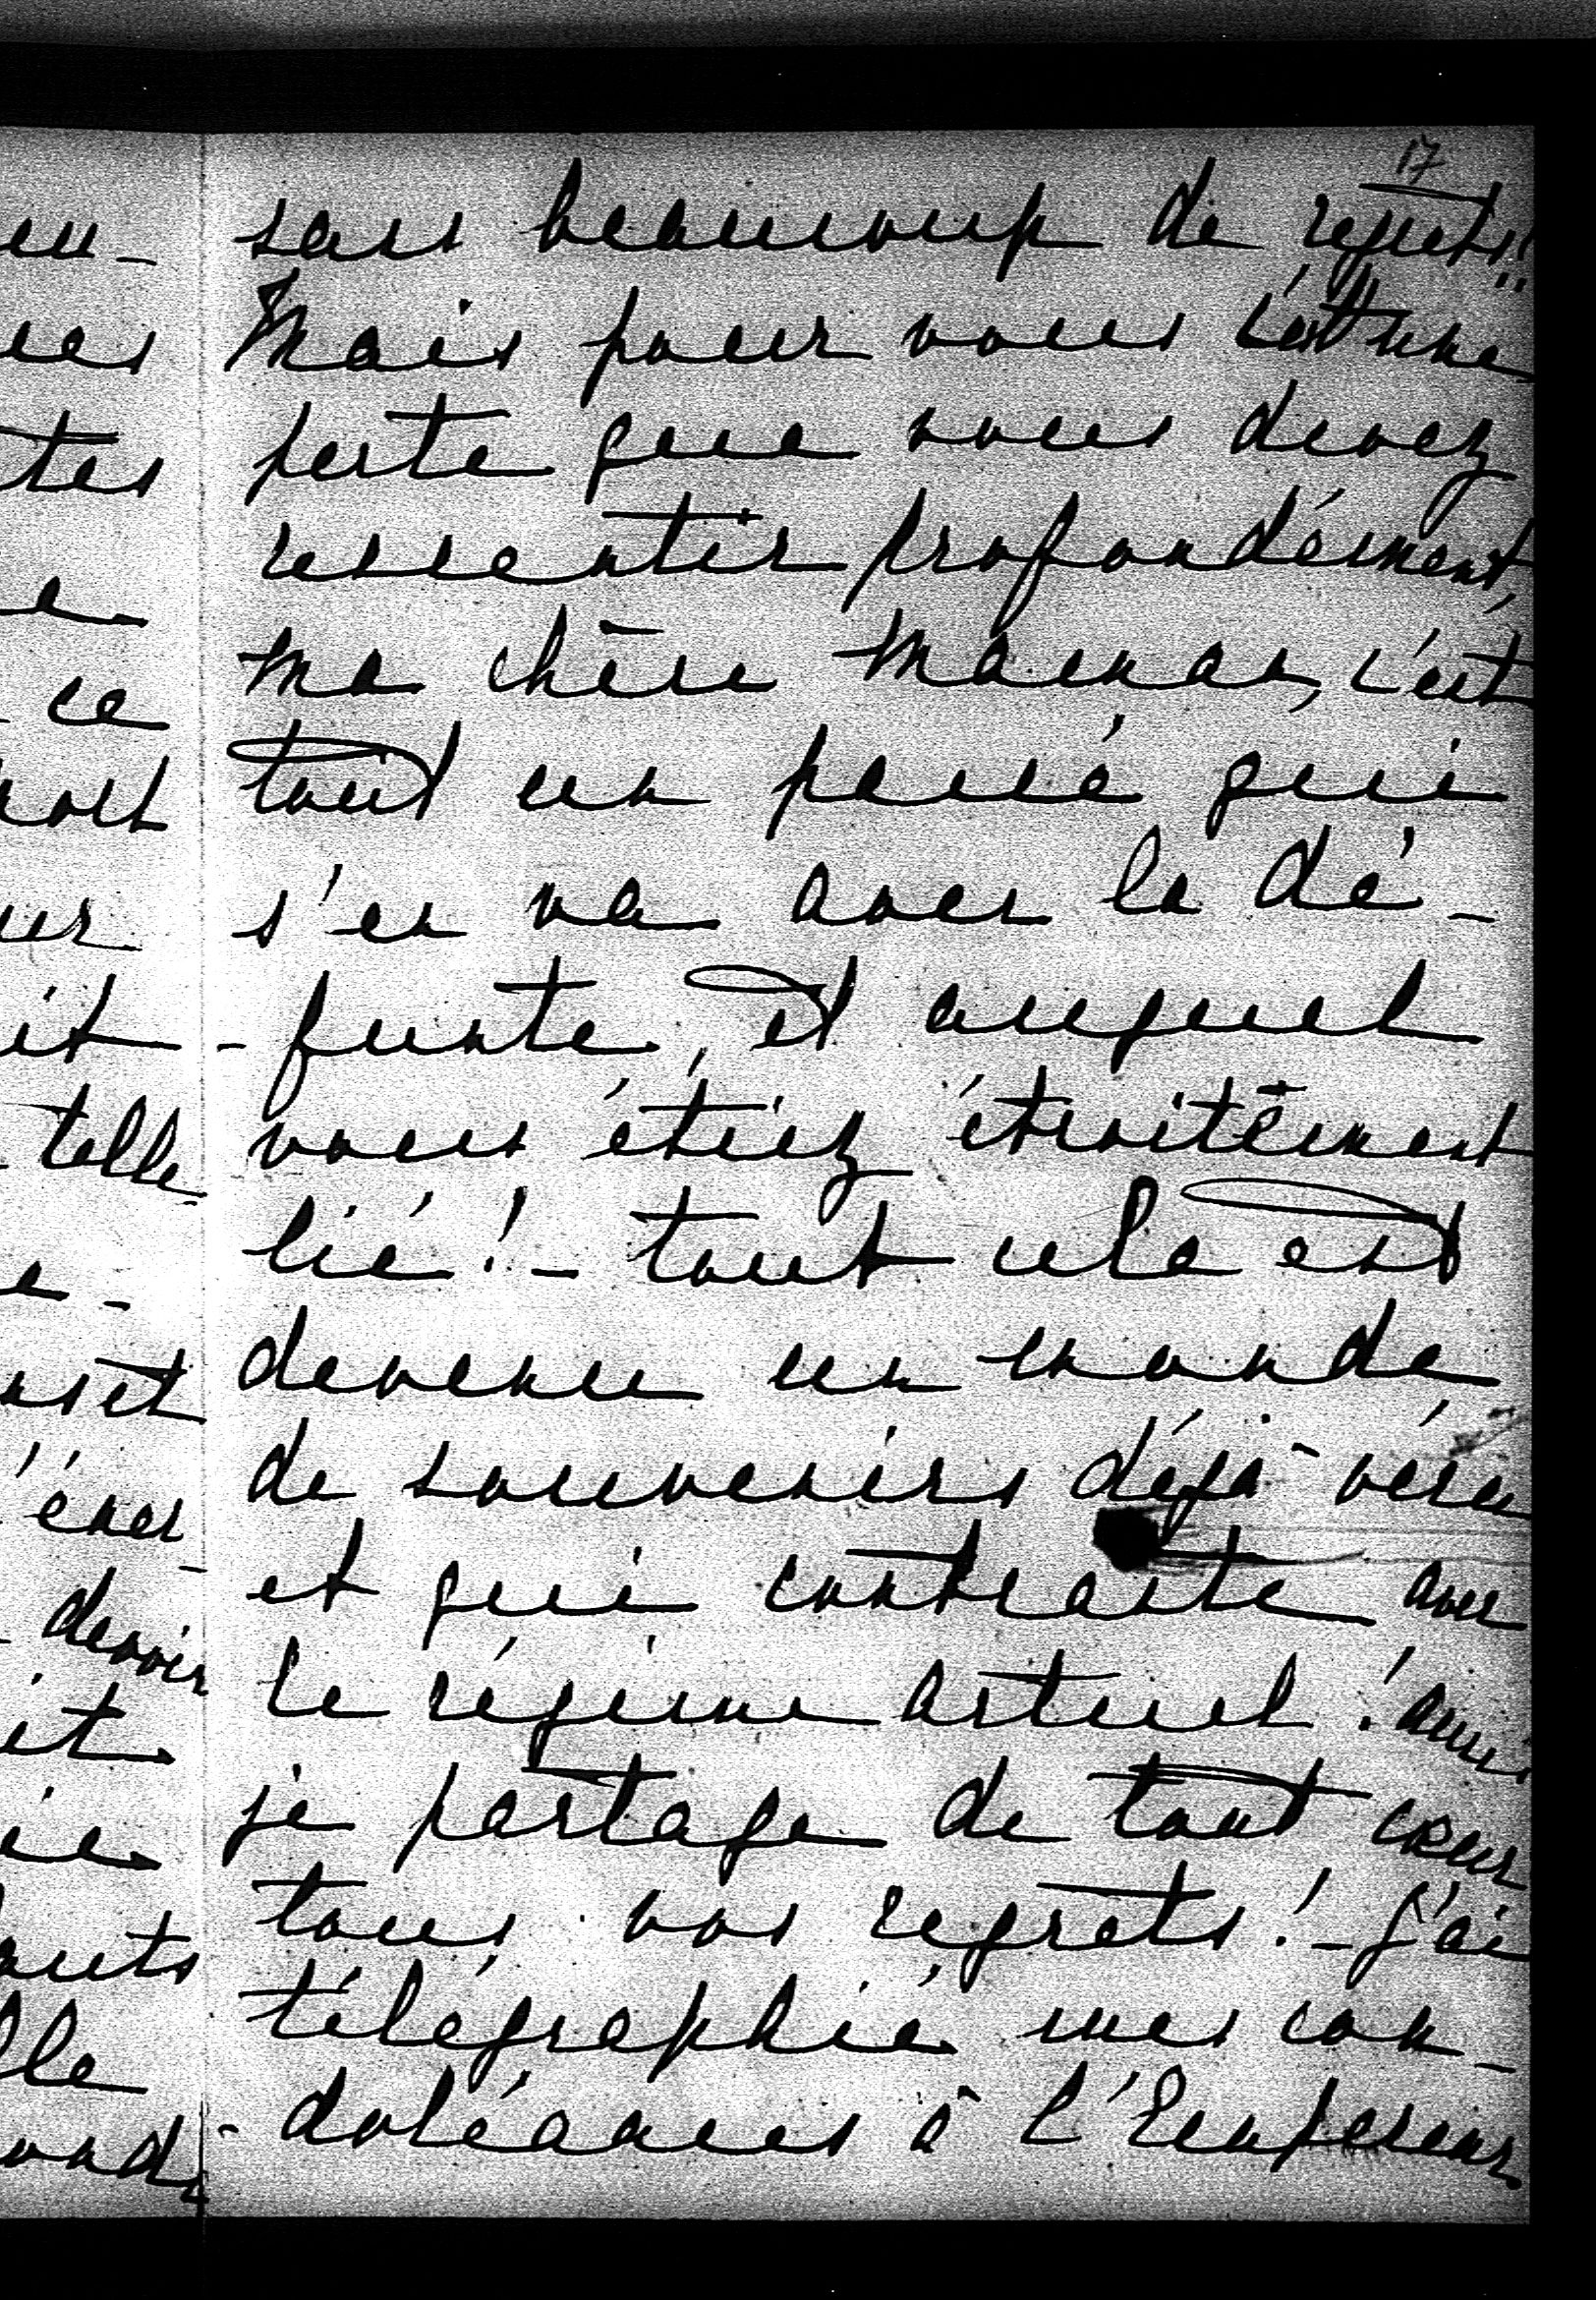 17
sans beaucoup de regrets!
Mais pour vous c'est une
perte que vous devez
ressentir profondément,
ma chère Maman, c'est
tout un passé qui
s'en va avec la dé-
-funte, et auquel
vous étiez étroitement
lié! - tout cela est
devenu un monde
de souvenirs déjà vécu
et qui contraste avec
le régime actuel! aussi
je partage de tout cœur
tous vos regrets! - J'ai
télégraphié mes con-
-doléances à l'Empereur
en-
ues
tes
e
ce
ur
it
telle
e-
devoir
it
ie
outs
lle